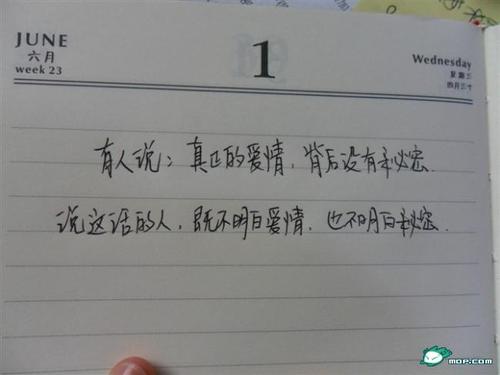 JUNE
六月
week 23
1
Wednesday
星期三
四月三十
有人说：真正的爱情，背后没有秘密.
说这话的人，既不明白爱情，也不明白秘密.
mop.com